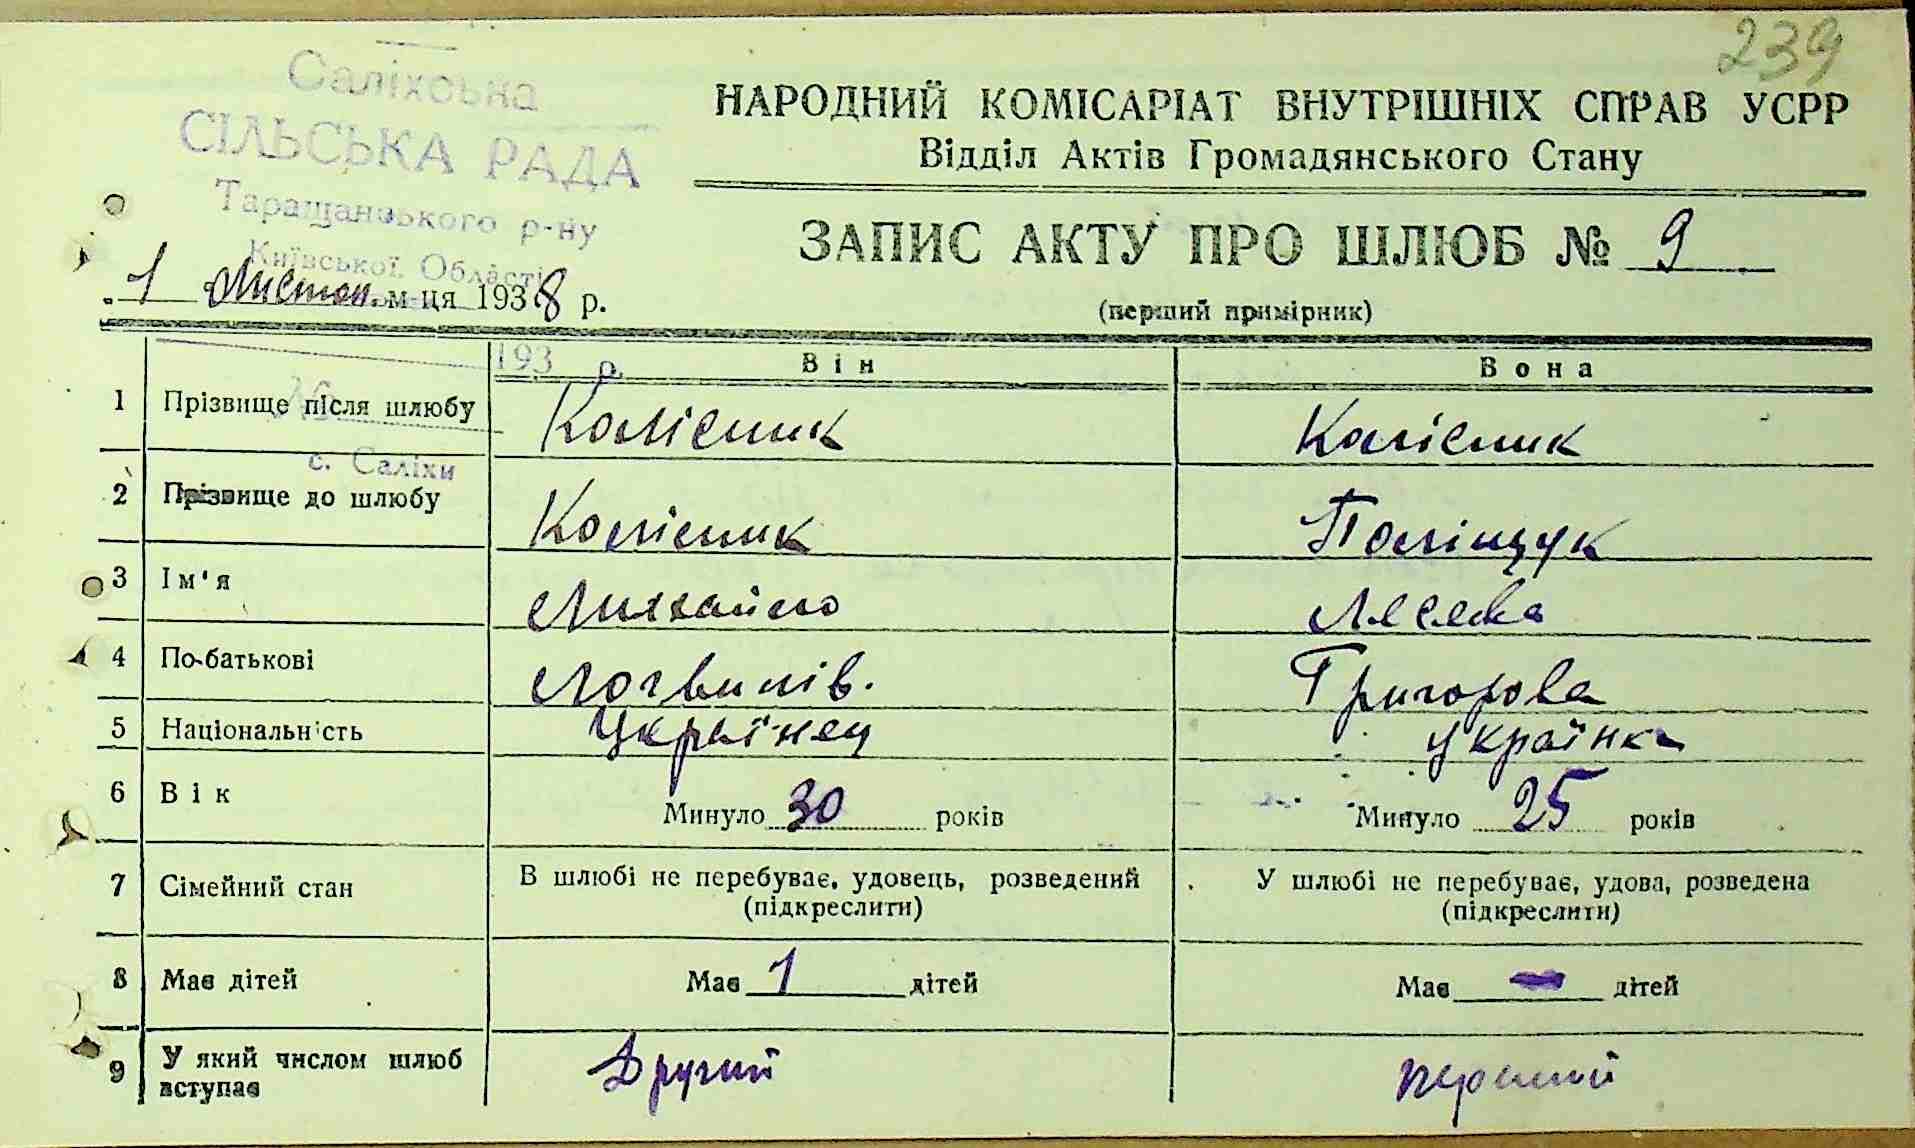 239
Саліхська
СІЛЬСЬКА РАДА
Таращанського р-ну
Київської Області
НАРОДНИЙ КОМІСАРІАТ ВНУТРІШНІХ СПРАВ УСРР
Відділ Актів Громадянського Стану
ЗАПИС АКТУ ПРО ШЛЮБ № 9
(перший примірник)
1 Листоп. м-ця 1938 р.
193 р.
Він Вона
1 Прізвище після шлюбу Колісник Колісник
№
с. Саліхи
2 Прізвище до шлюбу Колісник Поліщук
3 Ім'я Михайло
4 По-батькові Логвинів. Григорова
5 Національність Українец Українка
6 Вік Минуло 30 років Минуло 25 років
7 Сімейний стан В шлюбі не перебуває, удовець, розведений У шлюбі не перебуває, удова, розведена
(підкреслити) (підкреслити)
8 Має дітей Має 1 дітей Має — дітей
9 У який числом шлюб Другий перший
вступає